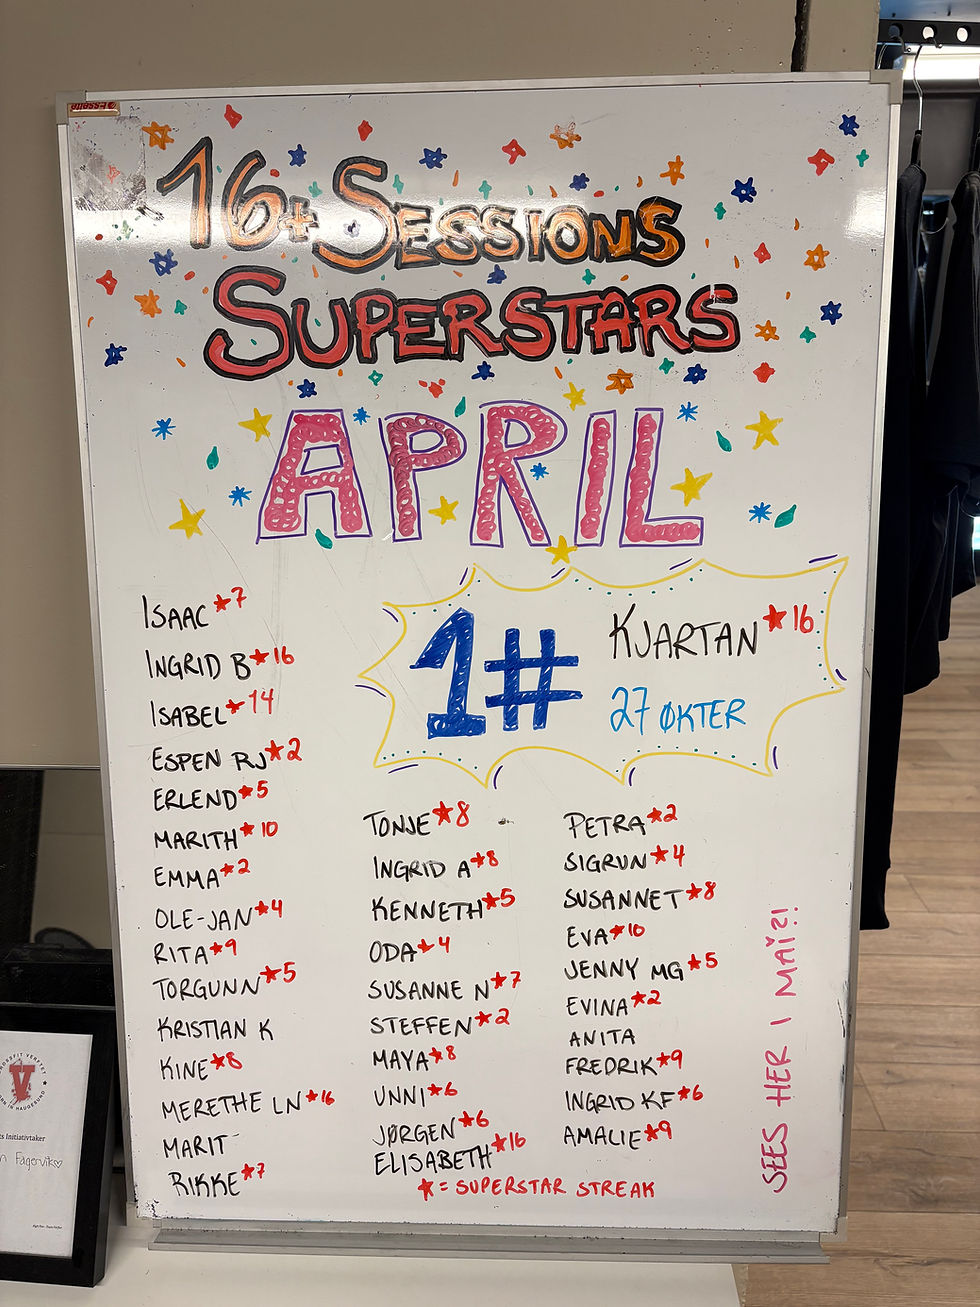 16+ SESSIONS
SUPERSTARS
APRIL
1# KJARTAN ★16
27 ØKTER
ISAAC ★7
INGRID B ★16
ISABEL ★14
ESPEN RJ ★2
ERLEND ★5
MARITH ★10
EMMA ★2
OLE-JAN ★4
RITA ★9
TORGUNN ★5
KRISTIAN K
KINE ★8
MERETHE LN ★16
MARIT
RIKKE ★7
TONJE ★8
INGRID A ★8
KENNETH ★5
ODA ★4
SUSANNE N ★7
STEFFEN ★2
MAYA ★8
UNNI ★6
JØRGEN ★6
ELISABETH ★16
PETRA ★2
SIGRUN ★4
SUSANNET ★8
EVA ★10
JENNY MG ★5
EVINA ★2
ANITA
FREDRIK ★9
INGRID KF ★6
AMALIE ★9
★ = SUPERSTAR STREAK
SEES HER I MAI?!
V
Initiativtaker
Fagervik